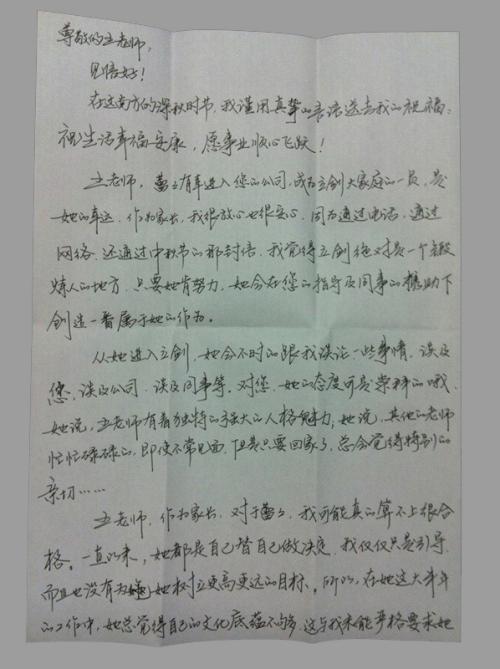 尊敬的王老师,
见信好!
在这南方的深秋时节,我谨用真挚的言语送去我的祝福:
祝生活幸福安康,愿事业顺心飞跃!
王老师,蕾蕾有幸进入您的公司,成为立创大家庭的一员,是
她的幸运。作为家长,我很放心也很安心。因为通过电话、通过
网络、还通过中秋节的那封信,我觉得立创绝对是一个锻
炼人的地方,只要她肯努力,她会在您的指导及同事的帮助下
创造一番属于她的作为。
从她进入立创,她会不时的跟我谈论一些事情,谈及
您、谈及公司、谈及同事等。对您,她的态度可是崇拜的哦。
她说,王老师有着独特的强大的人格魅力;她说,其他的老师
忙忙碌碌的,即使不常见面,但是只要回家了,总会觉得特别的
亲切……
王老师,作为家长,对于蕾蕾,我可能真的算不上很合
格。一直以来,她都是自己替自己做决定,我仅仅只是引导,
而且也没有为她树立更高更远的目标。所以,在她这大半年
的工作中,她总觉得自己的文化底蕴不够多,这与我未能严格要求她